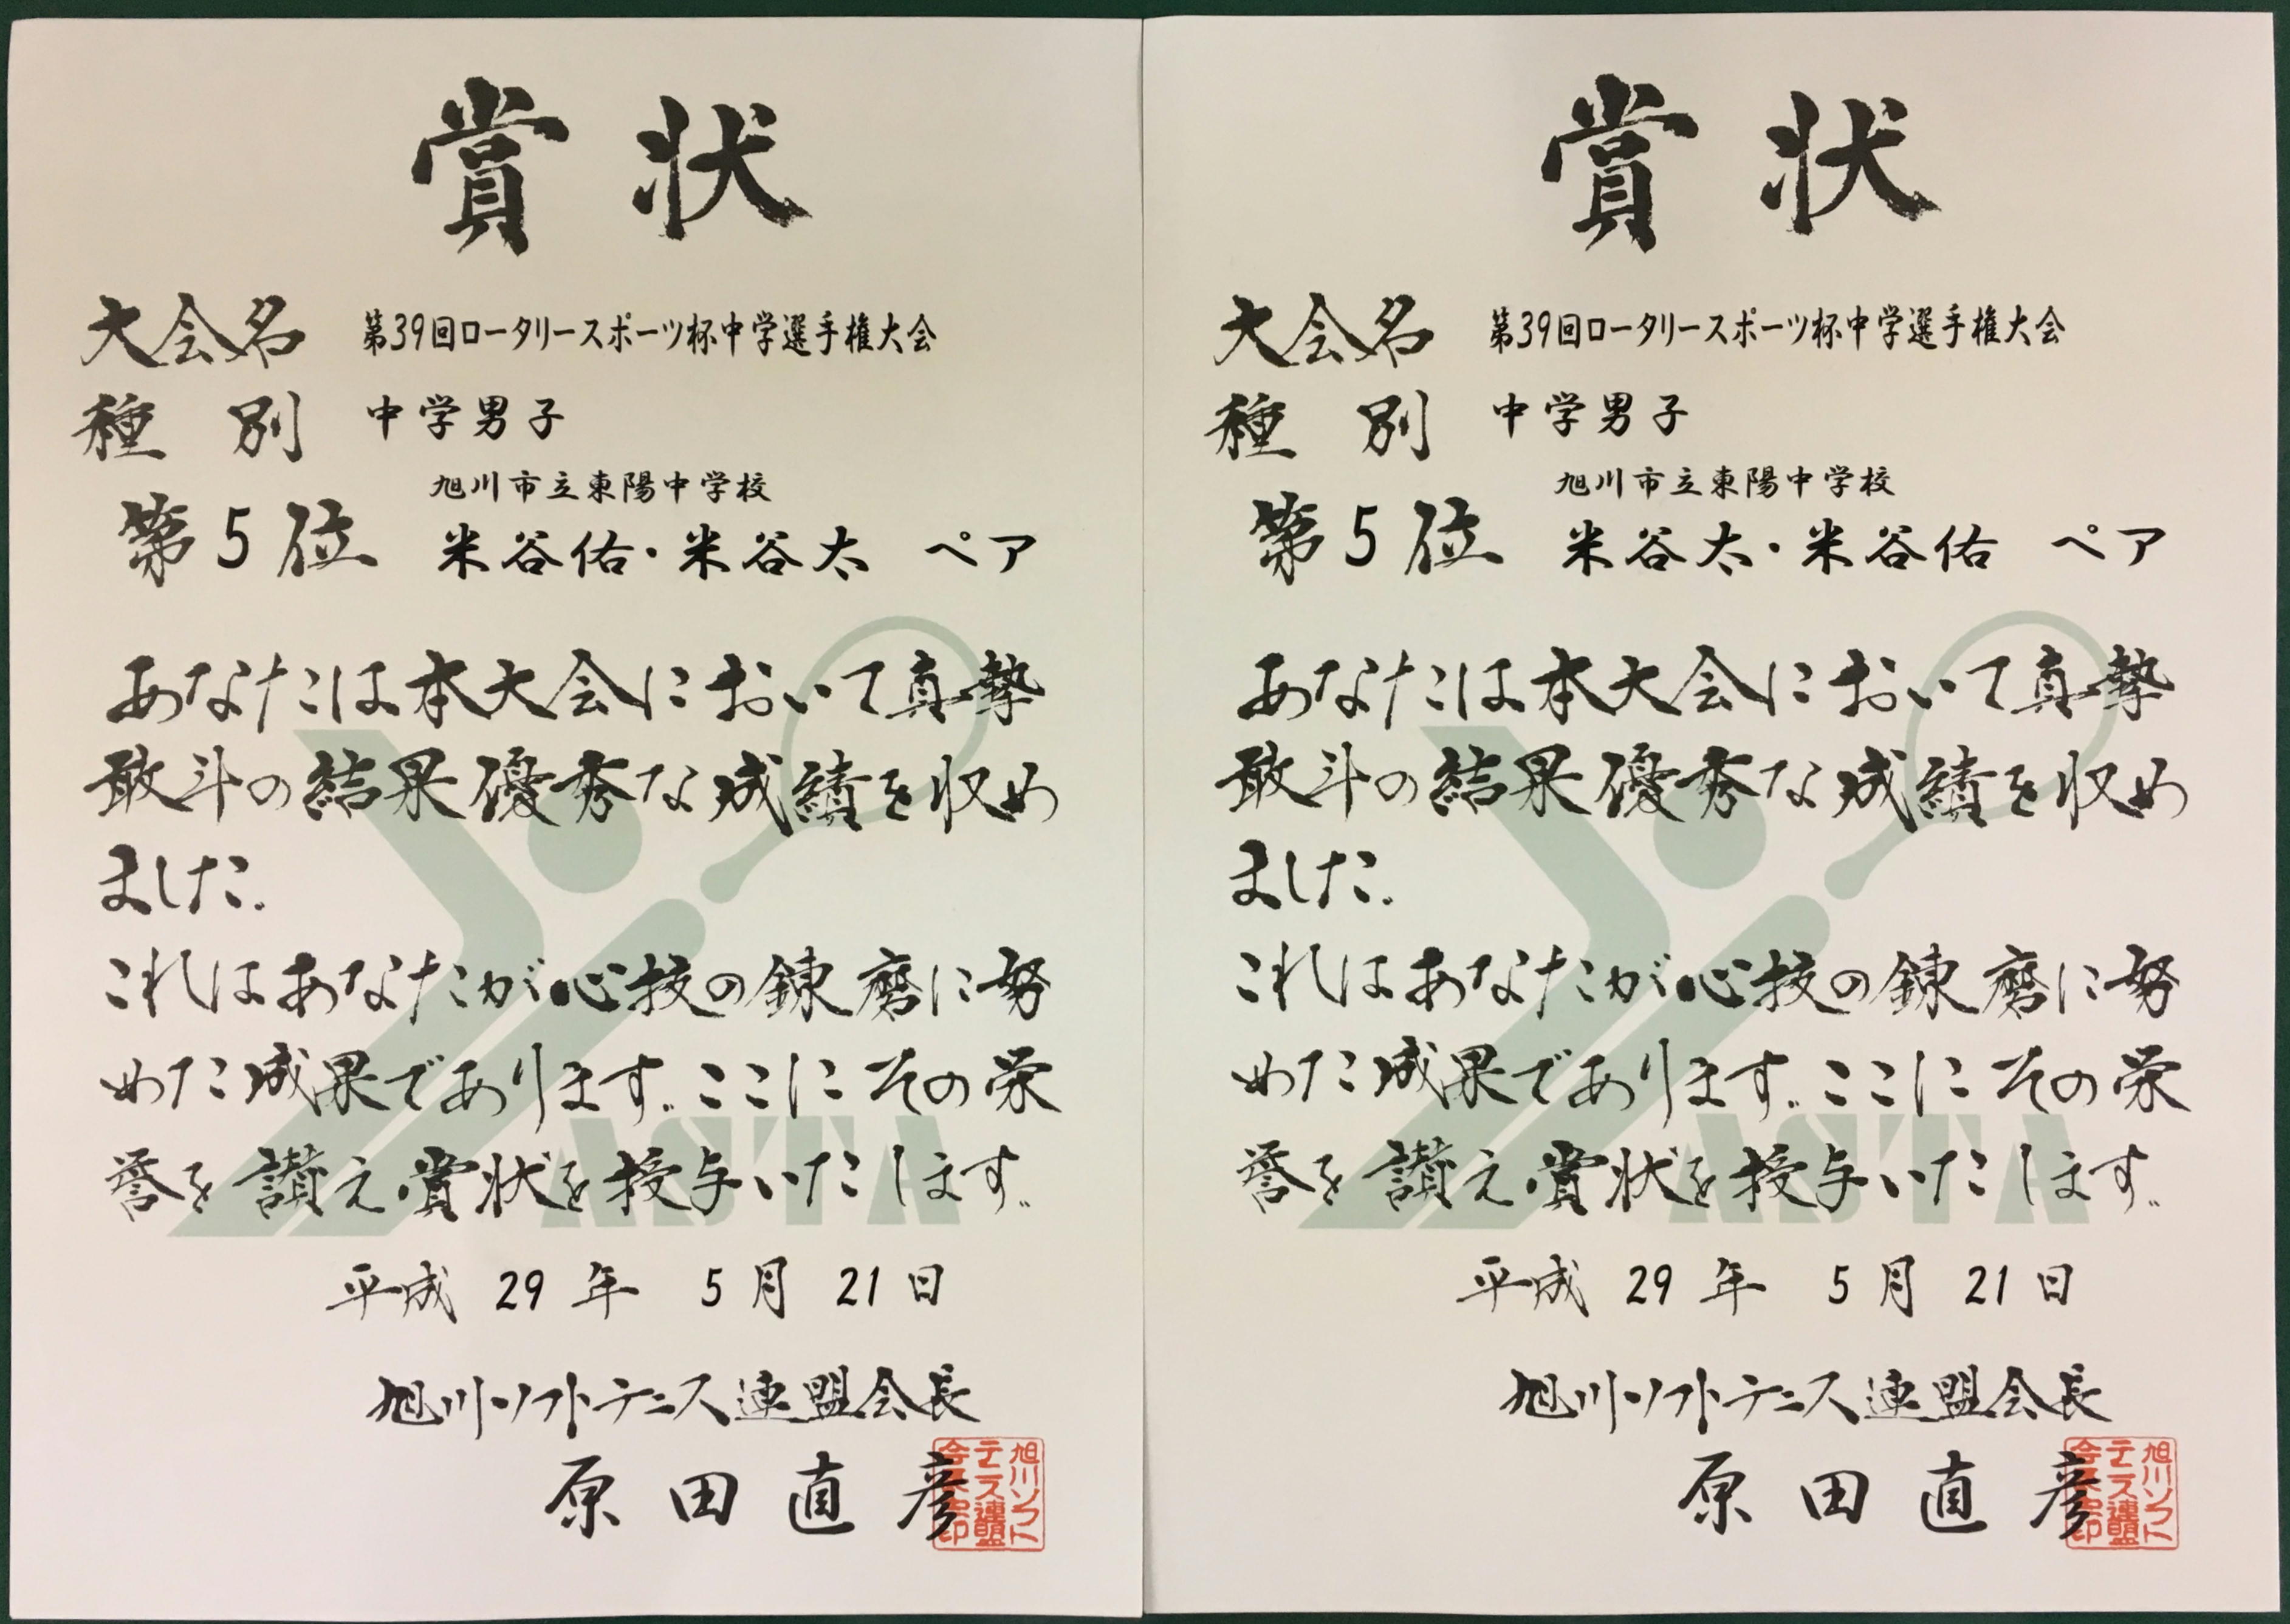 賞状
大会名 第39回ロータリースポーツ杯中学選手権大会
種別 中学男子
旭川市立東陽中学校
第5位 米谷佑・米谷太 ペア
あなたは本大会において真摯
敢斗の結果優秀な成績を収め
ました。
これはあなたが心技の錬磨に努
めた成果であります。ここにその栄
誉を讃え賞状を授与いたします。
ASTA
平成 29 年 5 月 21 日
旭川ソフトテニス連盟会長
原田直彦
旭川ソフト
テニス連盟
会長之印
賞状
大会名 第39回ロータリースポーツ杯中学選手権大会
種別 中学男子
旭川市立東陽中学校
第5位 米谷太・米谷佑 ペア
あなたは本大会において真摯
敢斗の結果優秀な成績を収め
ました。
これはあなたが心技の錬磨に努
めた成果であります。ここにその栄
誉を讃え賞状を授与いたします。
ASTA
平成 29 年 5 月 21 日
旭川ソフトテニス連盟会長
原田直彦
旭川ソフト
テニス連盟
会長之印